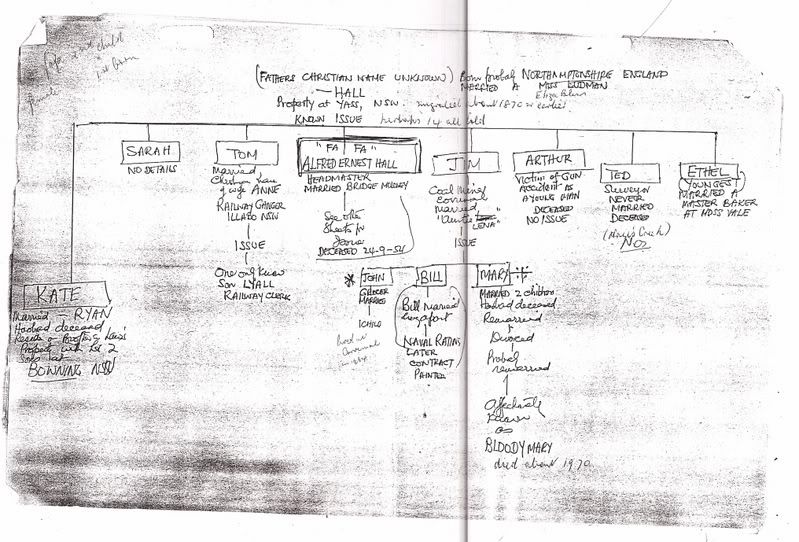 2nd child
(FATHERS CHRISTIAN NAME UNKNOWN) Born probably NORTHAMPTONSHIRE ENGLAND
— HALL MARRIED A MISS LUDMAN
Property at YASS, NSW. about 1870 or earlier
KNOWN ISSUE perhaps 14 all told
SARAH
NO DETAILS
TOM
Married
Christian name
of wife ANNE
RAILWAY GANGER
ILLABO NSW
ISSUE
One only know
Son LYALL
RAILWAY CLERK
"FA FA"
ALFRED ERNEST HALL
HEADMASTER
MARRIED BRIDGE
See other
Sheets for
Issue
DECEASED 24-9-54
JIM
Coal Miner
Married
"LENA"
ISSUE
ARTHUR
Victim of GUN
ACCIDENT AS
A YOUNG MAN
DECEASED
NO ISSUE
TED
Surveyor
NEVER
MARRIED
DECEASED
ETHEL
YOUNGEST
MARRIED A
MASTER BAKER
AT MOSS VALE
KATE
Married — RYAN
Husband deceased
Property with
BOWNING NSW
* JOHN
GROCER
MARRIED
1 CHILD
BILL
Bill married
NAVAL RATING
LATER
CONTRACT
PAINTER
MARY
MARRIED 2 children
Husband deceased
Remarried
Divorced
Probably
remarried
Affectionately
Known
as
BLOODY MARY
died about 1970